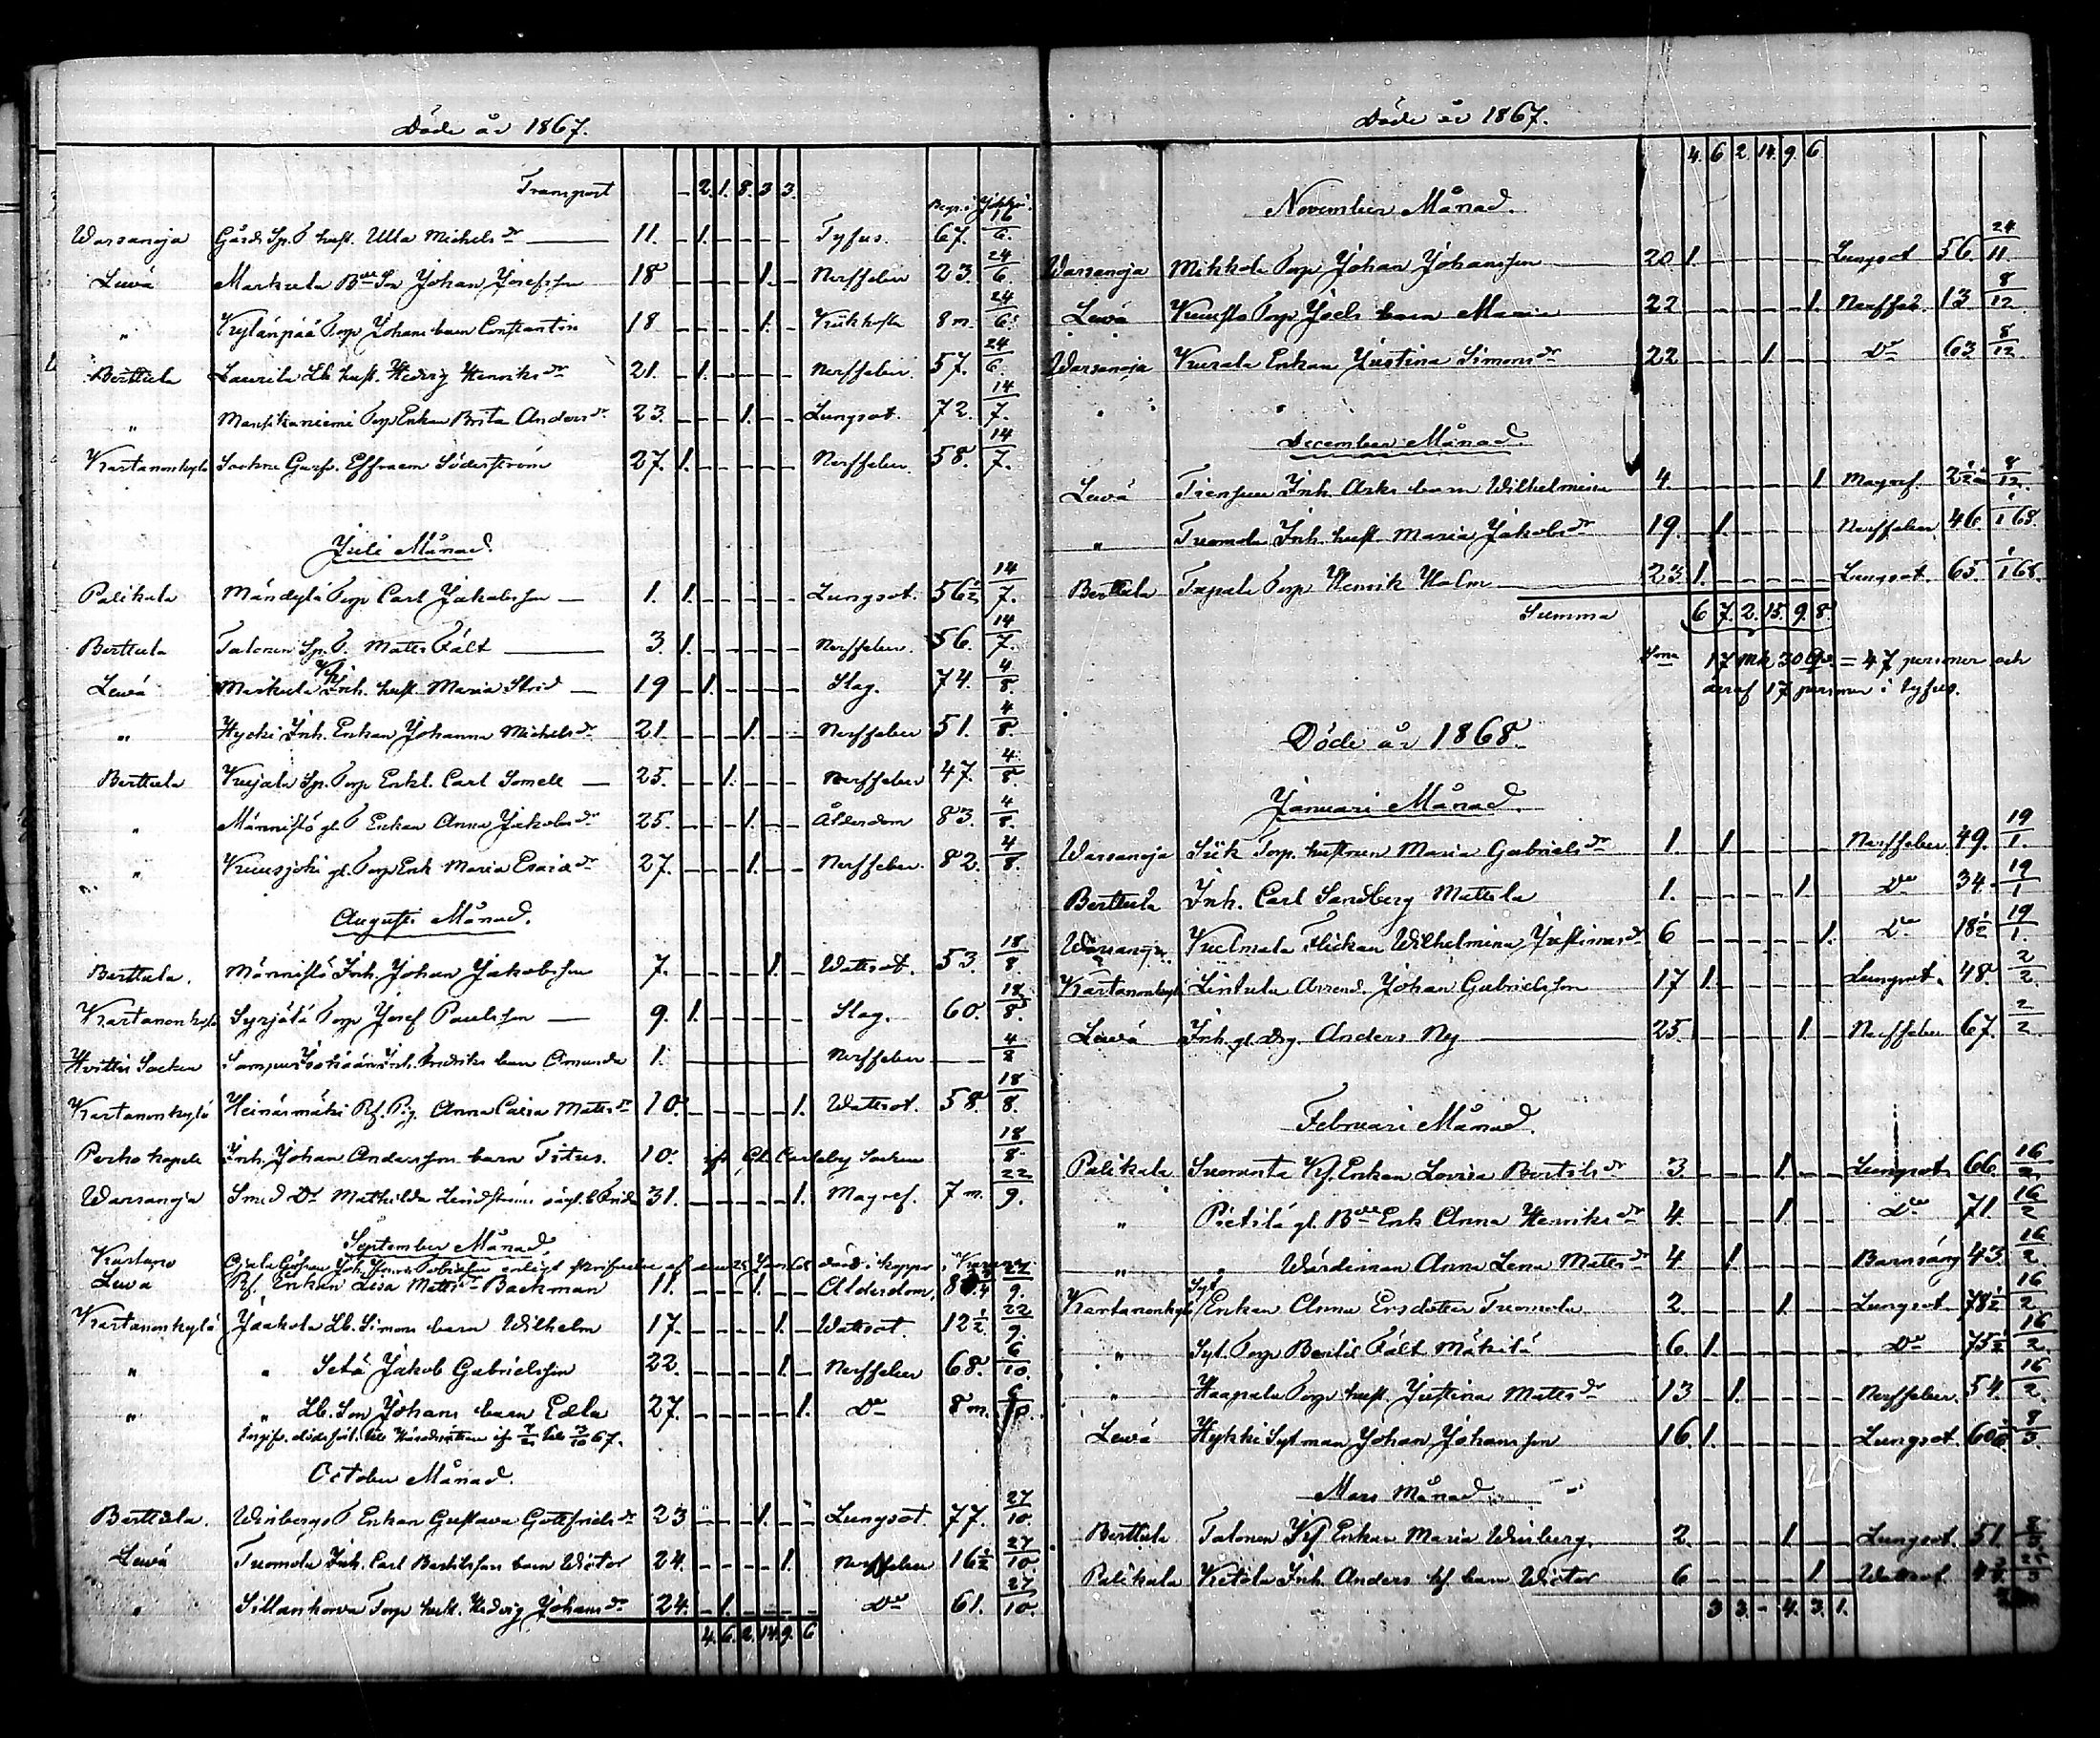 Döde år 1867.
Transport - 2. 1. 8. 3 3.
Warsanoja Gårds Sp. T. hust. Ulla Michelsdr 11. - 1. - - - - Tyfus. 67. 16/6.
Lewä Markula Bde Son Johan Josefsson 18 - - - - 1. - Nerffeber 23. 24/6.
" Kylänpää Torp Johans barn Constantin 18. - - - - 1. - Kikhosta 8 m. 24/6.
Berttula Laurila Lb. hust. Hedvig Henriksdr 21. - 1. - - - - Nerffeber. 57. 24/6.
" Torp Enkan Brita Andersdr 23. - - - 1. - - Lungsot. 72. 14/7.
Kartanonkylä Effraem Söderström 27. 1. - - - - - Nerffeber. 58. 14/7.
Juli Månad.
Palikala Torp Carl Jakobsson 1. 1. - - - - - Lungsot. 56 1/2 14/7.
Berttula Talonen Sp. T. Matts Fält 3. 1. - - - - - Nerffeber. 56. 14/7.
Lewä Markula Inh. hust. Maria Strid 19 - 1. - - - - Slag. 74. 4/8.
" Hycki Inh. Enkan Johanna Michelsdr 21. - - - 1. - - Nerffeber 51. 4/8.
Berttula Kujala Sp. Torp Enkl. Carl Somell 25. - - 1. - - - Nerffeber 47. 4/8.
" Männistö gl. T. Enkan Anna Jakobsdr 25. - - - 1. - - Ålderdom 83. 4/8.
" Kuusjoki gl. Torp Enk Maria Esaiædr 27. - - - 1. - - Nerffeber. 82. 4/8.
Augusti Månad.
Berttula. Männistö Inh. Johan Jakobsson 7. - - - - 1. - Wattsot. 53. 18/8.
Kartanonkylä Syrjälä Torp Josef Paulsson 9. 1. - - - - - Slag. 60. 18/8.
Hvittis Socken Inh. Fredriks barn Amanda 1. - - - - - - Nerffeber - 4/8
Kartanonkylä Heinäsmäki Rf. Pig. Anna Caisa Mattsdr 10. - - - - - 1. Wattsot. 58. 18/8.
Perho kapell Inh. Johan Andersson barn Titus. 10. if. Gl. Carleby Socken 18/8.
Warsanoja Smed Dr Mathilda Lindströms oägt. b. Frida 31. - - - - - 1. Magref. 7 m. 22/9.
September Månad.
Kartano enligt skrifvelse af den 25 Jan. 68 död i koppor i
Lewä Rf. Enkan Lisa Mattsdr Backman 11. - - - 1. - - Ålderdom. 22/9.
Kartanonkylä Jaakola Lb. Simons barn Wilhelm 17. - - - - 1. - Wattsot. 12 1/2 22/9.
" " Setä Jakob Gabrielsson 22. - - - - 1. - Nerffeber 68. 6/10.
" " Lb. Son Johans barn Edla 27. - - - - - 1. Do 8 m. 6/10.
67.
October Månad.
Berttula. Winbergs T. Enkan Gustava Gottfridsdr 23 - - - 1. - - Lungsot. 77. 27/10.
Lewä Tuomola Inh. Carl Bertilssons barn Wictor 24. - - - - 1. - Nerffeber 16 1/2 27/10.
" Sillankorva Torp hust. Hedvig Johansdr 24. - 1. - - - - Do 61. 27/10.
4. 6. 2. 14. 9. 6
Döde år 1867.
4. 6 2. 14. 9. 6.
November Månad.
Warsanoja Mikkola Torp Johan Johansson 20 1. - - - - - Lungsot 56 24/11
Lewä Kuusto Torp Joels barn Maria 22 - - - - - 1. Nerffeb. 13. 8/12
Warsanoja Kurala Enkan Justina Simonsdr 22 - - - 1. - - Do 63 8/12.
December Månad.
Lewä Inh. barn Wilhelmina 4. - - - - - 1. Magref. 8/12.
" Tuomola Inh. hust. Maria Jakobsdr 19. - 1. - - - - Nerffeber. 46. 1/1 68.
Berttula Tapala Torp Henrik Holm 23. 1. - - - - - Lungsot. 63. 1/1 68.
Summa 6. 7. 2. 15. 9. 8.
Sma 17 mk 30 = 47 personer och
deraf 17 personer i tyfus.
Döde år 1868.
Januari Månad.
Warsanoja Torp. hustrun Maria Gabrielsdr 1. - 1 - - - - Nerffeber. 49. 19/1.
Berttula Inh. Carl Sandberg Mattila 1. - - - - 1. - Do 34. 19/1
Warsanoja Flickan Wilhelmina Justinasdr 6 - - - - - 1. Do 18 1/2 19/1
Kartanonkylä Lintula Arrend. Johan Gabrielsson 17 1. - - - - - Lungsot. 48. 2/2.
Lewä Inh. gl. Drg. Anders Ny 25. - - - - 1. - Nerffeber 67. 2/2.
Februari Månad.
Palikala Enkan Lovisa Bertilsdr 3. - - - 1. - - Lungsot. 66. 16/2.
" Pietilä gl. Bde Enk Anna Henriksdr 4. - - - 1. - - Do 71. 16/2
" " Wärdinnan Anna Lena Mattsdr 4 - 1. - - - - Barnsäng 43. 16/2.
Kartanonkylä Syt. Enkan Anna Ersdotter Tuomola 2. - - - 1. - - Lungsot. 78 1/2 16/2.
" Syt. Torp Bertil Fält Mäkilä 6. 1. - - - - - Do 75 1/2 16/2.
" Haapala Torp hust. Justina Mattsdr 13 - 1. - - - - Nerffeber. 54. 16/2.
Lewä Hykki Sytman Johan Johansson 16. 1. - - - - - Lungsot. 8/3.
Mars Månad
Berttula Talonen Enkan Maria Winberg. 2. - - - 1. - - Lungsot. 51. 8/3.
Palikala Ketola Inh. Anders barn Wictor 6 - - - - 1. - Wattsot. 25/3
3 3. - 4. 3. 1.